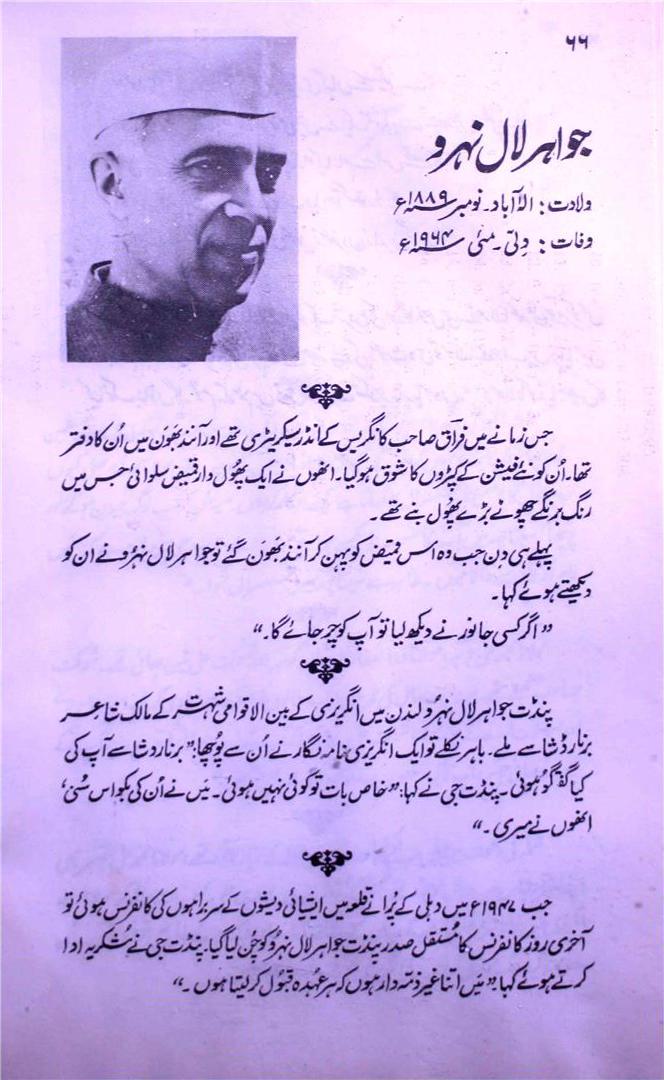 ۶۶
جواہر لال نہرو
ولادت: الہ آباد۔ نومبر ۱۸۸۹ء
وفات: دِلّی۔ مئی ۱۹۶۴ء
جس زمانے میں فراقؔ صاحب کانگریس کے انڈر سیکریٹری تھے اور آنند بھَون میں اُن کا دفتر
تھا۔ اُن کو نئے فیشن کے کپڑوں کا شوق ہوگیا۔ انھوں نے ایک پھُول دار قمیض سلوائی جس میں
رنگ برنگے چھوٹے بڑے پھُول بنے تھے۔
پہلے ہی دن جب وہ اس قمیض کو پہن کر آنند بھَون گئے تو جواہر لال نہرو نے ان کو
دیکھتے ہوئے کہا۔
”اگر کسی جانور نے دیکھ لیا تو آپ کو چَر جائے گا۔“
پنڈت جواہر لال نہرو لندن میں انگریزی کے بین الاقوامی شہرت کے مالک شاعر
برنارڈ شا سے ملے۔ باہر نکلے تو ایک انگریزی نامہ نگار نے اُن سے پُوچھا: ”برناردشا سے آپ کی
کیا گفتگو ہوئی۔ پنڈت جی نے کہا: ”خاص بات تو کوئی نہیں ہوئی۔ میَں نے اُن کی بکواس سُنی،
انھوں نے میری۔“
جب ۱۹۴۷ء میں دہلی کے پُرانے قلعہ میں ایشیائی دیشوں کے سربراہوں کی کانفرنس ہوئی تو
آخری روز کانفرنس کا مُستقل صدر پنڈت جواہر لال نہرو کو چُن لیا گیا۔ پنڈت جی نے شکریہ ادا
کرتے ہوئے کہا: ”میَں اتنا غیر ذمّہ دار ہوں کہ ہر عہدہ قبول کر لیتا ہوں۔“